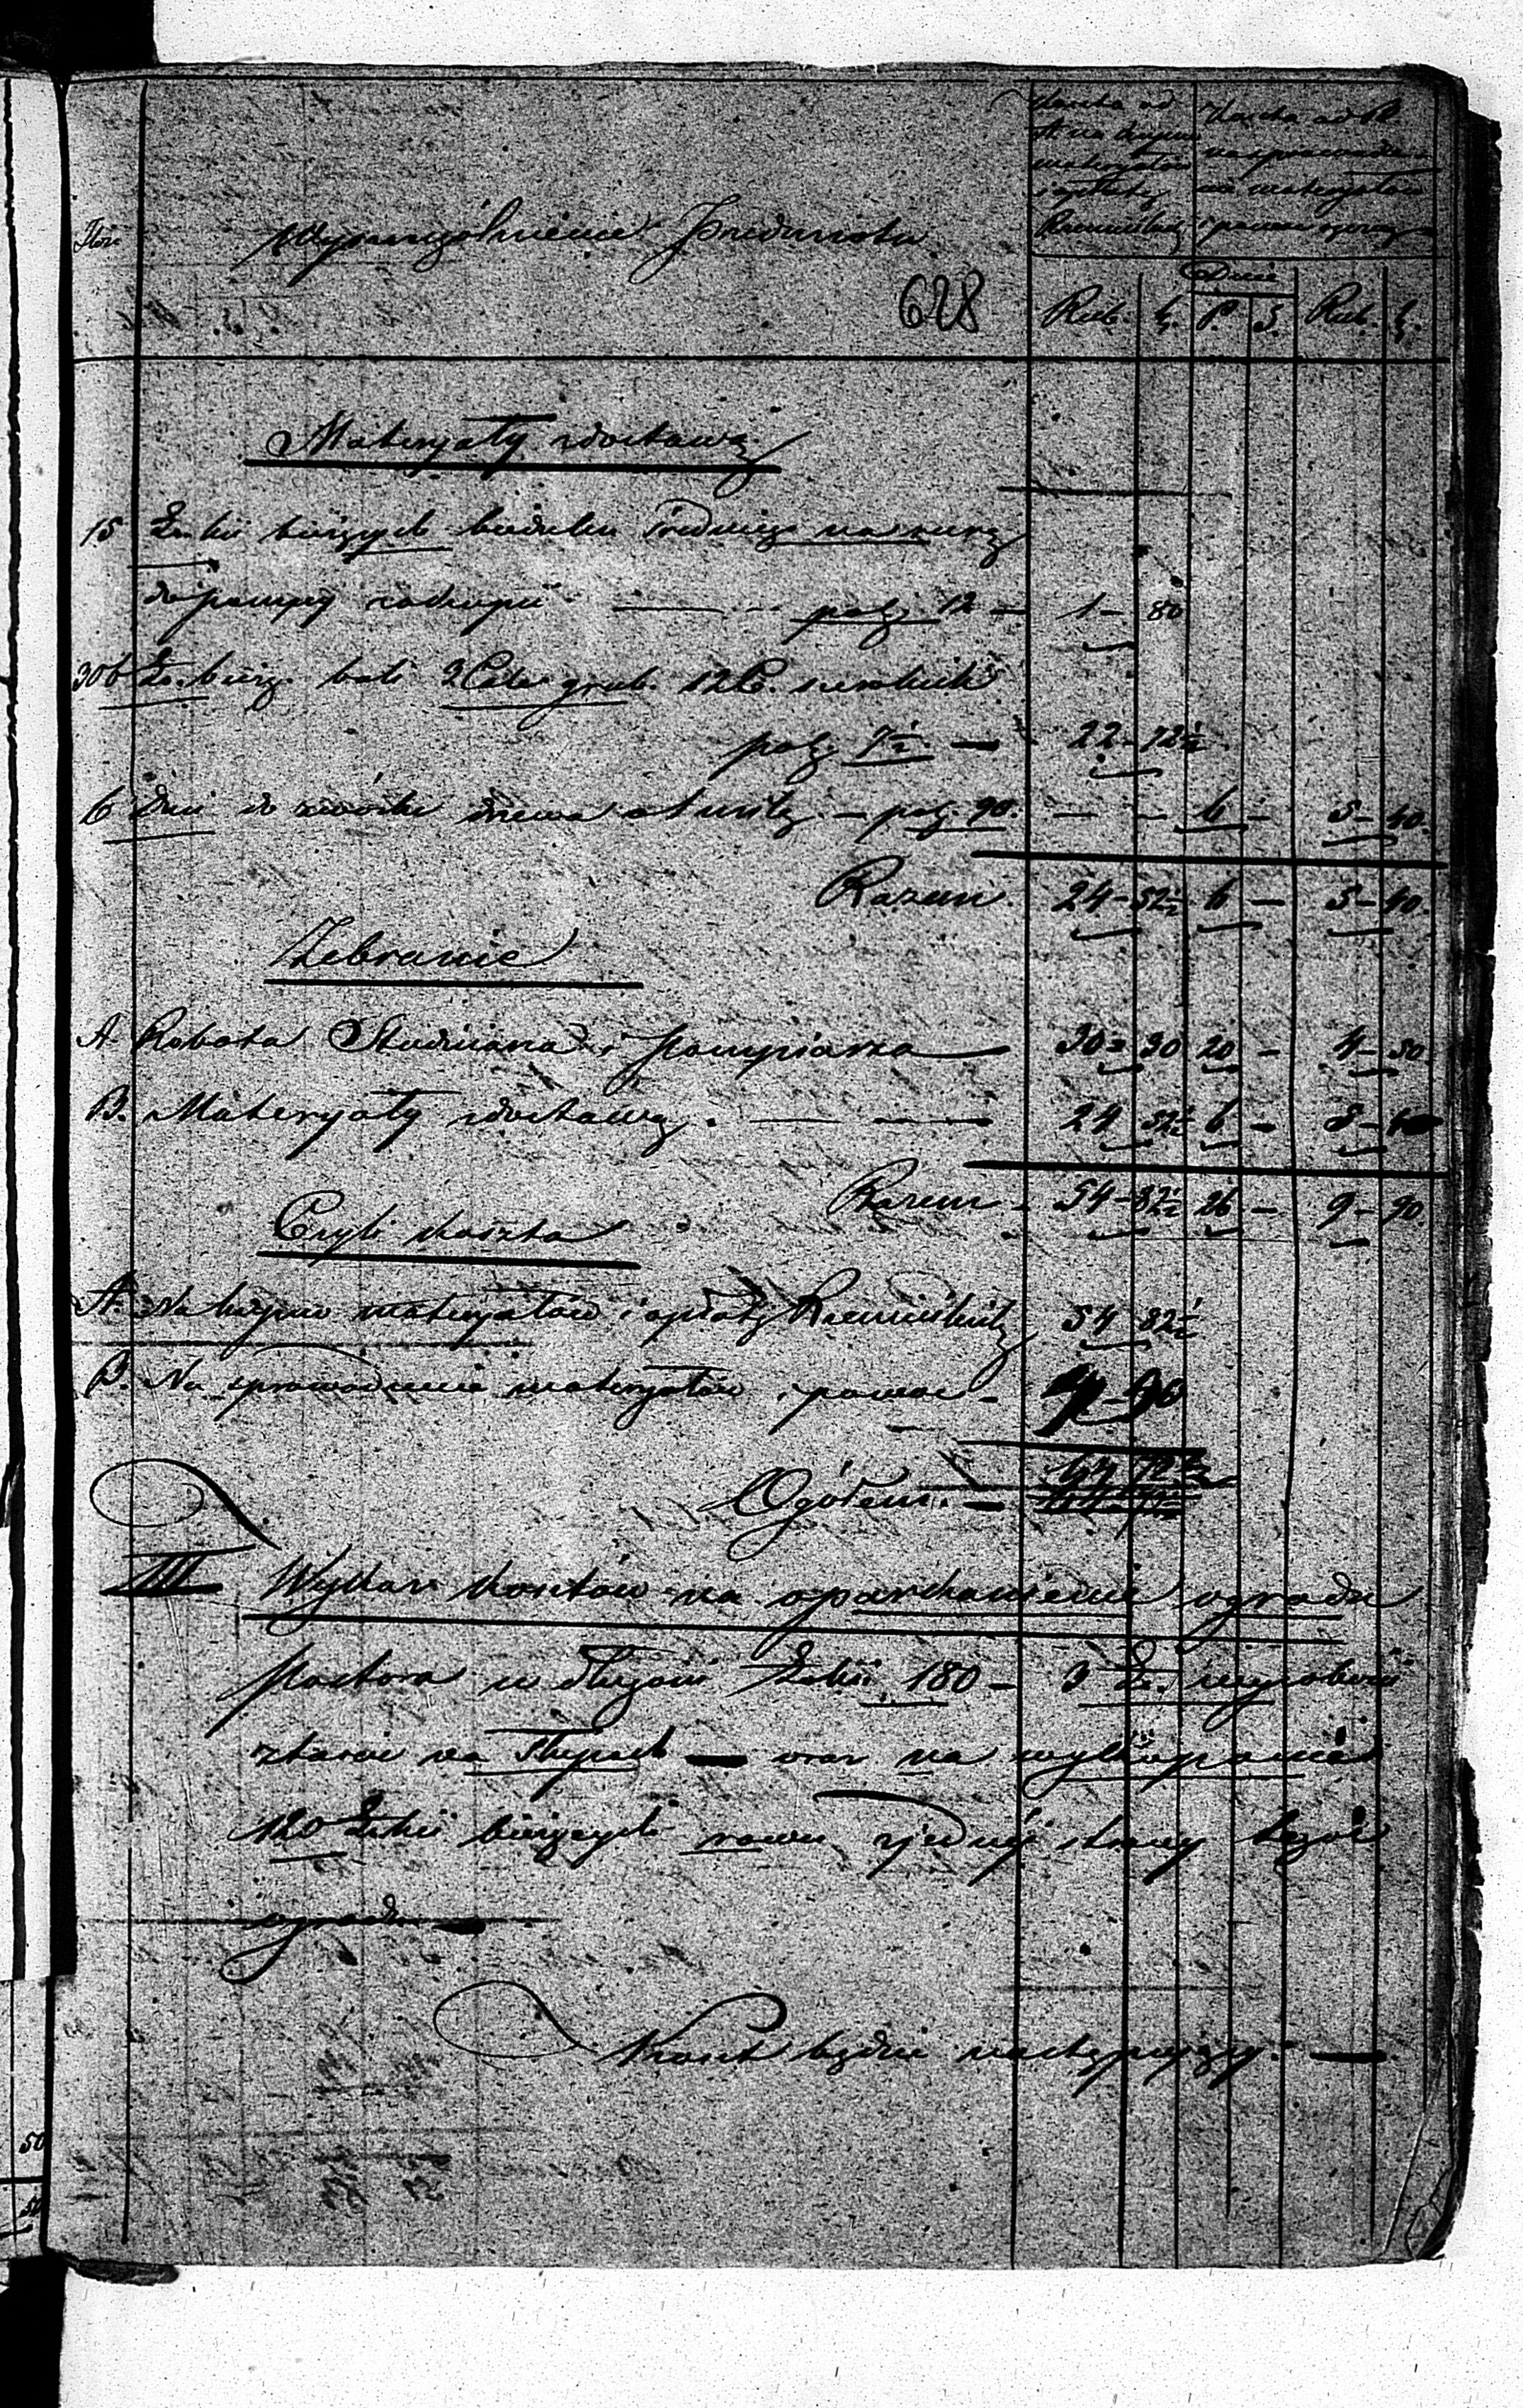 Ilość
Wyszczególnienie Przedmiotu
628
Koszta ad
A na kupno
materyałów
i opłatę
Rzemieślnik
Koszta ad B
na sprowadze-
nie materyałów
i pomoc
Rub. k.
Dnie
P. S.
Rub. k.
Materyały z dostawą
15 Łokci bieżących średniego na rurę
do pompy po kop. 12 — 1 – 80
306 Ło. bież. bali 2 Cale grub. 12 C. szerokich
po kop. 7½ — 22 – 72½
6 dni do zwózki drzewa po kop. 90. — — 6 – 5 – 40.
Razem 24 – 52½ 6 – 5 – 40.
Zebranie
A. Robota Studniarza i Pompiarza — 30 – 30 20 – 4 – 50
B. Materyały z dostawą. — 24 52½ 6 – 5 – 40
Razem 54 – 82½ 26 – 9 – 90.
Czyli koszta
A. Na kupno materyałów i opłatę Rzemieślnika 54 – 82½
B. Na sprowadzenie materyałów i pomoc – 9 – 90
Ogółem. — 64 72½
III Wykaz kosztów na oparkanienie ogrodu
Pastora w długości Łokci 180 – 3 Ło. wysokości
na słupach — oraz na wykopanie
120 Łokci bieżących rowu z jednej strony tegoż
ogrodu —
Koszt będzie następujący. —
50
50